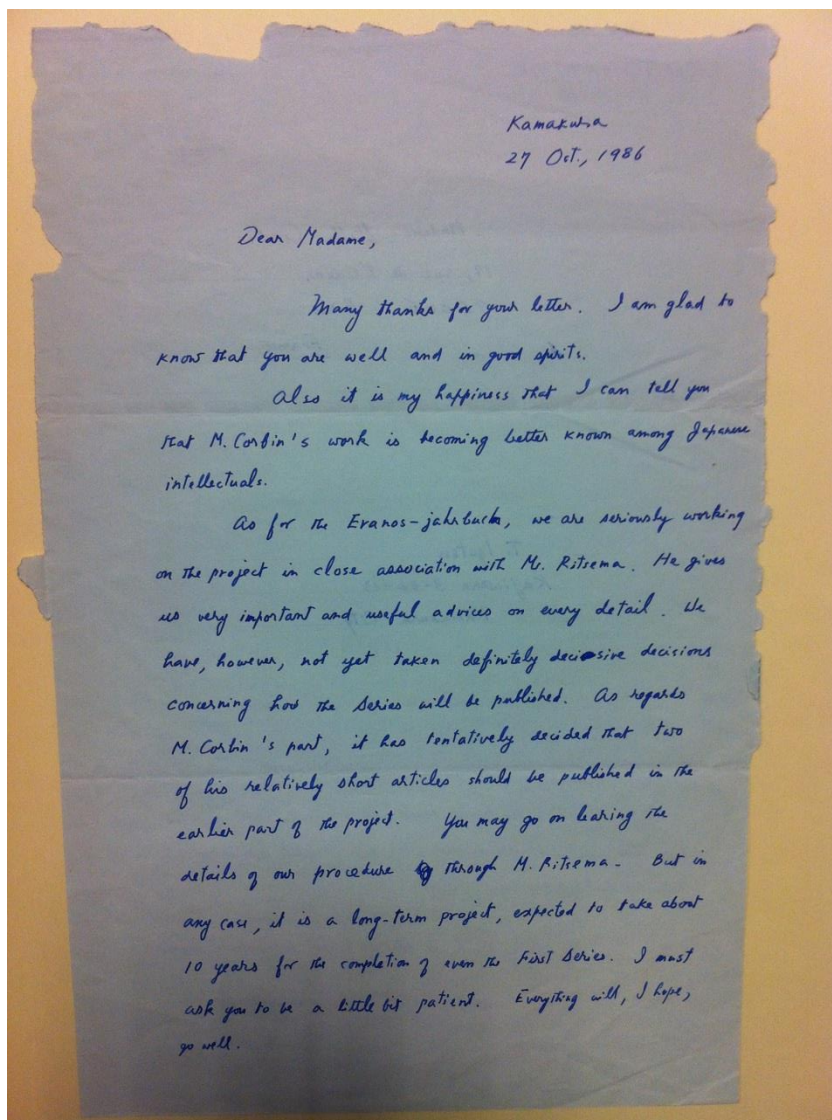 Kamakura
27 Oct., 1986
Dear Madame,
Many thanks for your letter. I am glad to
know that you are well and in good spirits.
Also it is my happiness that I can tell you
that M. Corbin's work is becoming better known among Japanese
intellectuals.
As for the Eranos-jahrbuch, we are seriously working
on the project in close association with Mr. Ritsema. He gives
us very important and useful advices on every detail. We
have, however, not yet taken definitely decisive decisions
concerning how the Series will be published. As regards
M. Corbin's part, it has tentatively decided that two
of his relatively short articles should be published in the
earlier part of the project. You may go on learing the
details of our procedure through M. Ritsema. But in
any case, it is a long-term project, expected to take about
10 years for the completion of even the First Series. I must
ask you to be a little bit patient. Everything will, I hope,
go well.